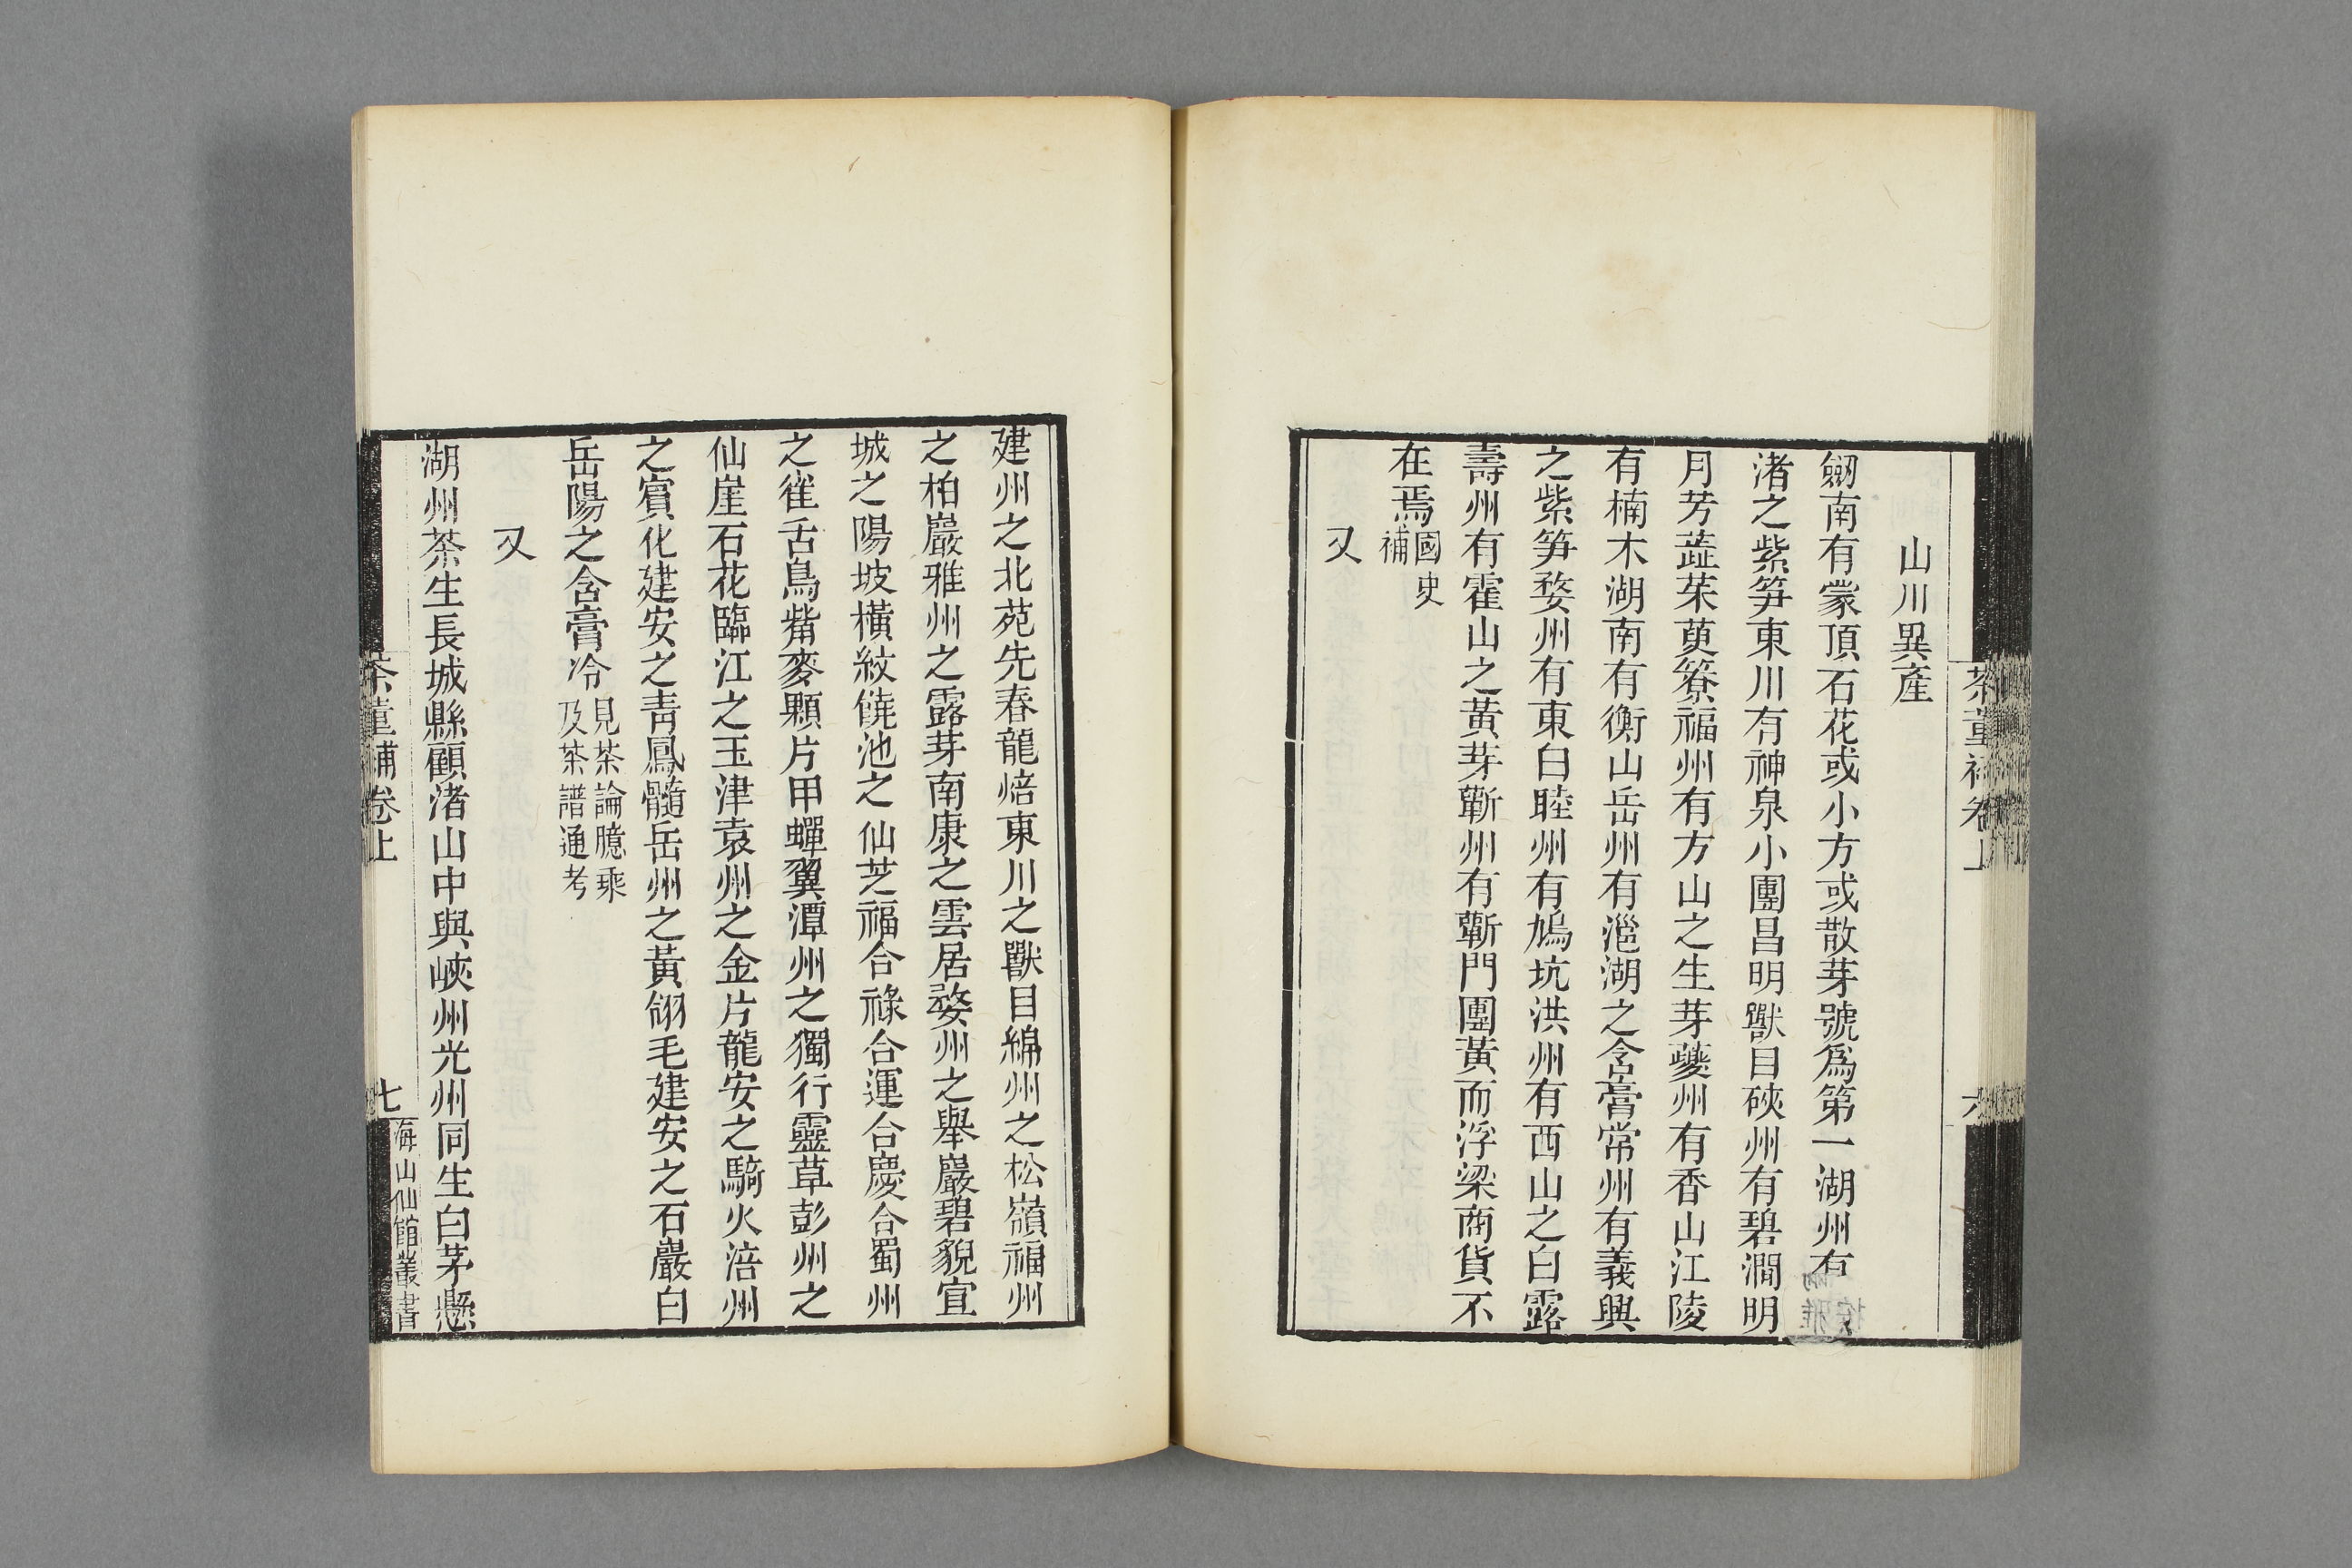 山川異產
劒南有蒙頂石花或小方或散芽號爲第一湖州有
渚之紫笋東川有神泉小團昌明獸目硤州有碧澗明
月芳蕋茱萸簝福州有方山之生芽夔州有香山江陵
有楠木湖南有衡山岳州有㴩湖之含膏常州有義興
之紫笋婺州有東白睦州有鳩坑洪州有西山之白露
壽州有霍山之黃芽蘄州有蘄門團黃而浮梁商貨不
在焉國史補
又
茶董補卷上
六
建州之北苑先春龍焙東川之獸目綿州之松嶺福州
之柏巖雅州之露芽南康之雲居婺州之舉巖碧貌宣
城之陽坡橫紋饒池之仙芝福合祿合運合慶合蜀州
之雀舌鳥觜麥顆片甲蟬翼潭州之獨行靈草彭州之
仙崖石花臨江之玉津袁州之金片龍安之騎火涪州
之賓化建安之青鳳髓岳州之黃翎毛建安之石巖白
岳陽之含膏冷見茶論臆乘及茶譜通考
又
湖州茶生長城縣顧渚山中與峽州光州同生白茅懸
茶董補卷上
七
海山仙館叢書